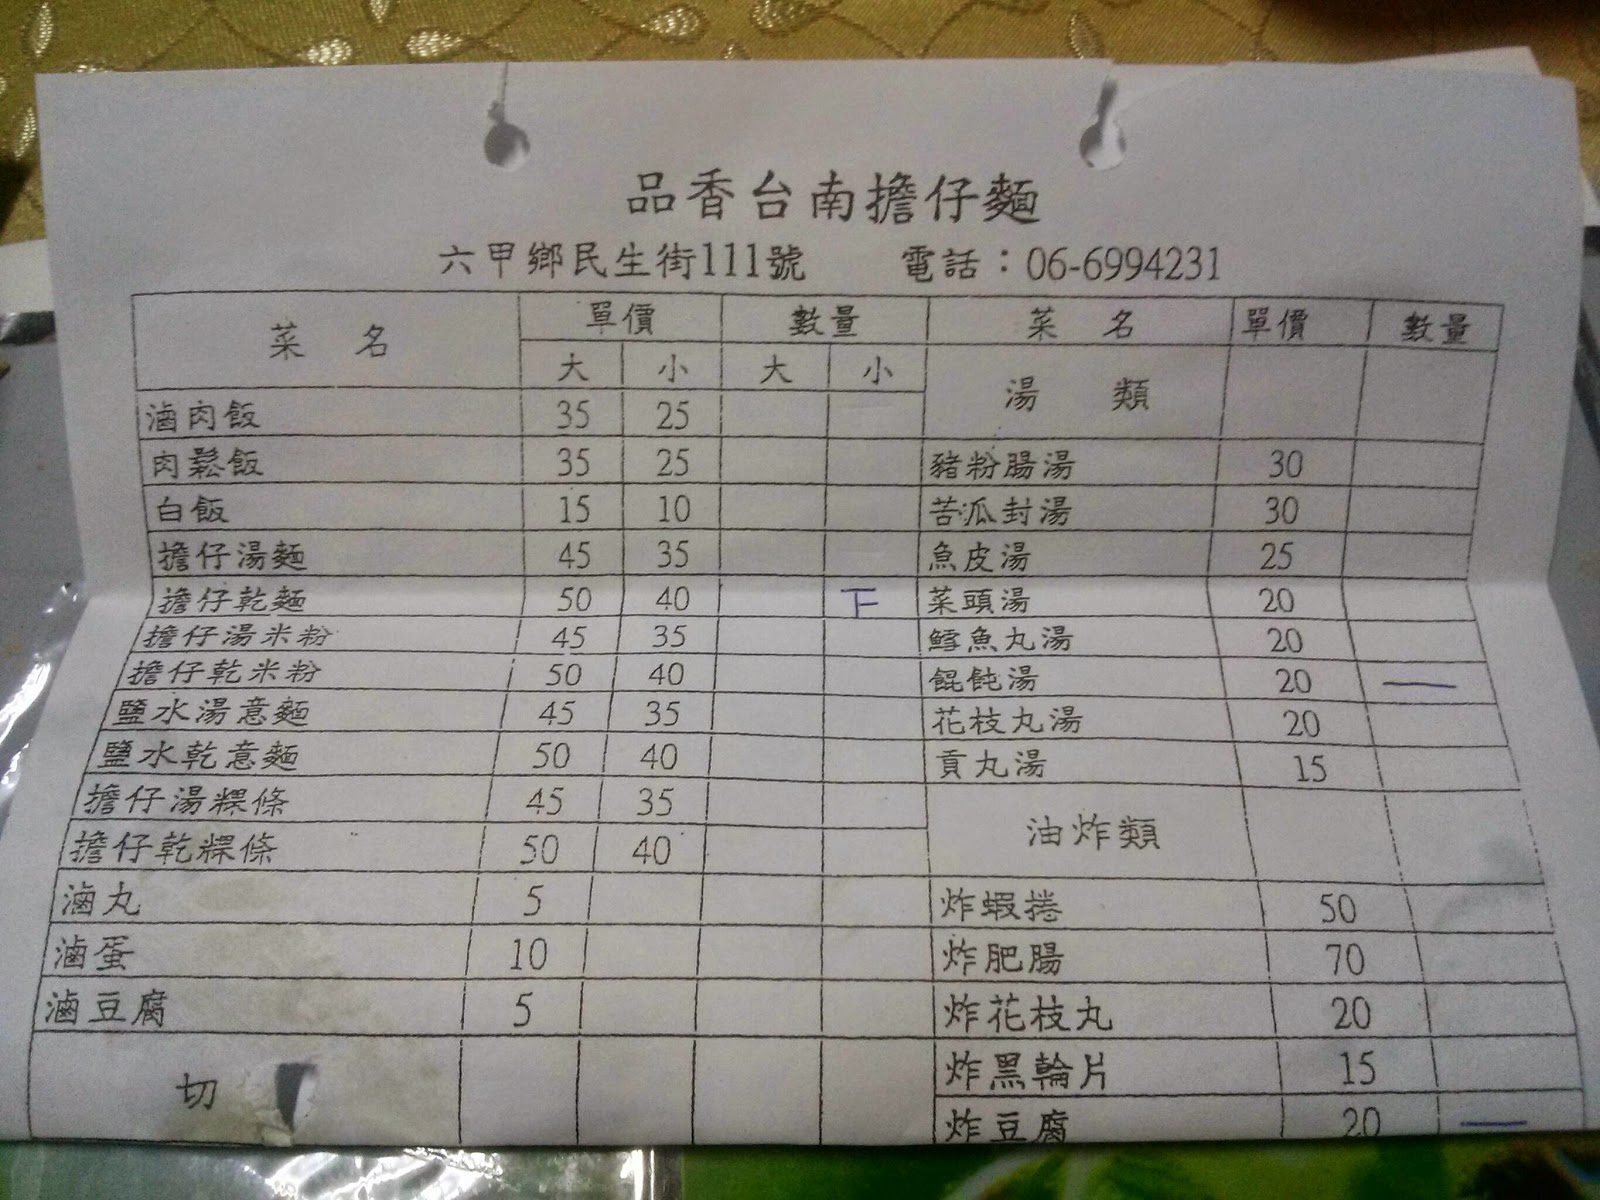 品香台南擔仔麵
六甲鄉民生街111號 電話：06-6994231
菜 名 單價 數量 菜 名 單價 數量
大 小 大 小 湯 類
滷肉飯 35 25
肉鬆飯 35 25 豬粉腸湯 30
白飯 15 10 苦瓜封湯 30
擔仔湯麵 45 35 魚皮湯 25
擔仔乾麵 50 40 下 菜頭湯 20
擔仔湯米粉 45 35 鱈魚丸湯 20
擔仔乾米粉 50 40 餛飩湯 20 一
鹽水湯意麵 45 35 花枝丸湯 20
鹽水乾意麵 50 40 貢丸湯 15
擔仔湯粿條 45 35 油炸類
擔仔乾粿條 50 40
滷丸 5 炸蝦捲 50
滷蛋 10 炸肥腸 70
滷豆腐 5 炸花枝丸 20
切 炸黑輪片 15
炸豆腐 20 一